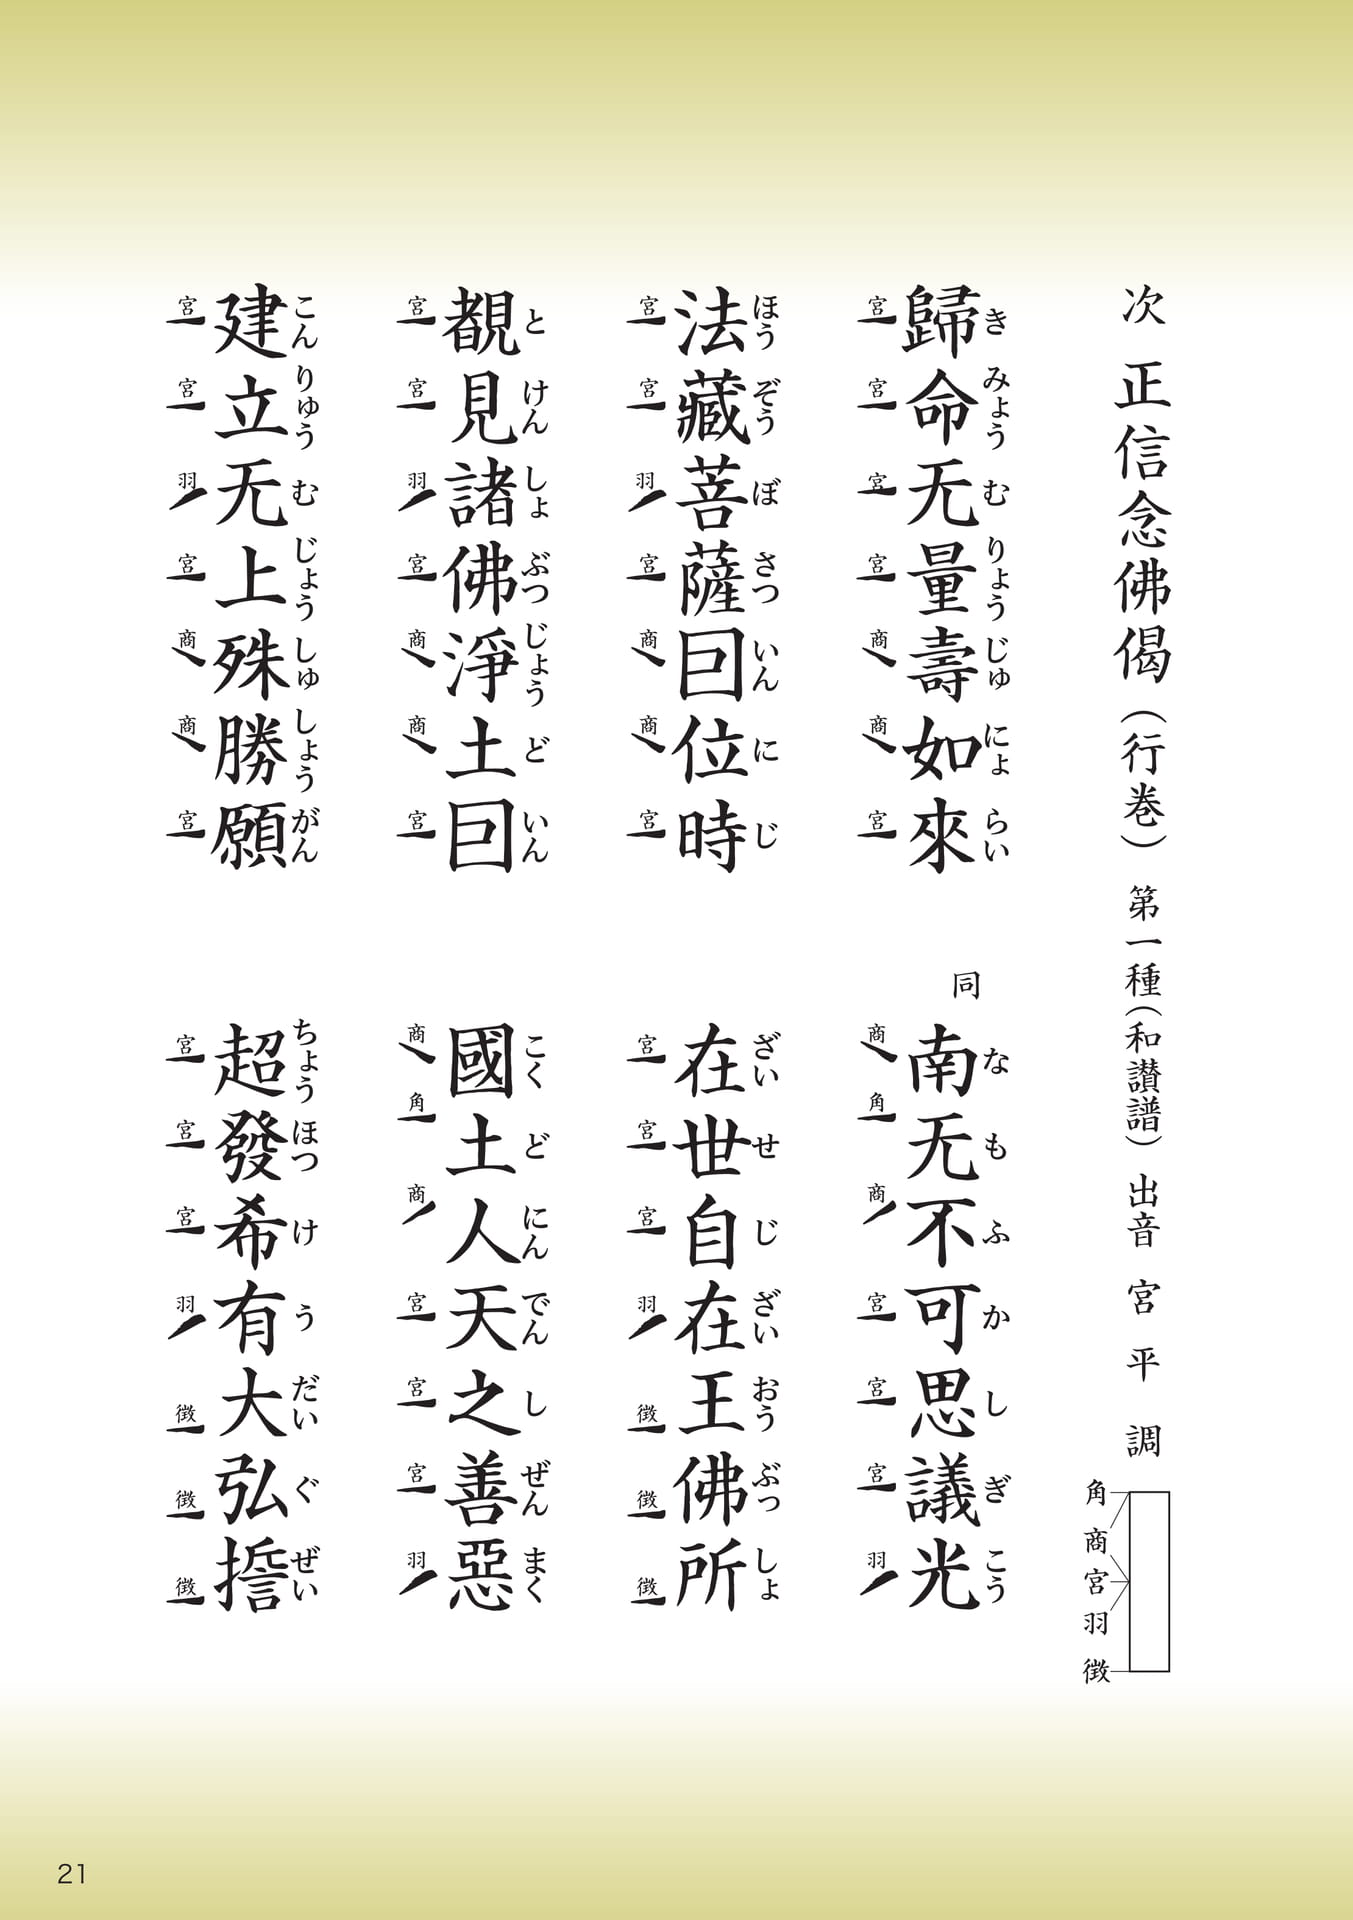 次 正信念佛偈（行巻） 第一種（和讃譜） 出音 宮 平 調
角
商
宮
羽
徴
歸命无量壽如來
き みょう む りょう じゅ にょ らい
宮 宮 宮 宮 商 商 宮
同
南无不可思議光
な も ふ か し ぎ こう
商 角 商 宮 宮 宮 羽
法藏菩薩囙位時
ほう ぞう ぼ さつ いん に じ
宮 宮 羽 宮 商 商 宮
在世自在王佛所
ざい せ じ ざい おう ぶっ しょ
宮 宮 宮 羽 徴 徴 徴
覩見諸佛淨土囙
と けん しょ ぶつ じょう ど いん
宮 宮 羽 宮 商 商 宮
國土人天之善惡
こく ど にん でん し ぜん まく
商 角 商 宮 宮 宮 羽
建立无上殊勝願
こん りゅう む じょう しゅ しょう がん
宮 宮 羽 宮 商 商 宮
超發希有大弘誓
ちょう ほつ け う だい ぐ ぜい
宮 宮 宮 羽 徴 徴 徴
21